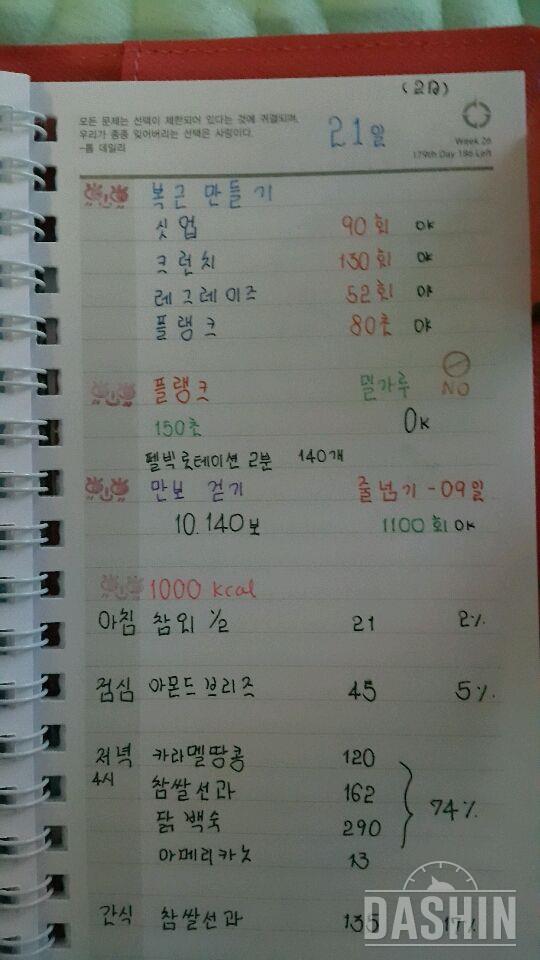 (2일)
모든 문제는 선택이 제한되어 있다는 것에 귀결되며,
우리가 종종 잊어버리는 선택은 사랑이다.
-톰 데일리
21일
Week 26
179th Day 186 Left
복근 만들기
싯업 90회 OK
크런치 130회 OK
레그레이즈 52회 OK
플랭크 80초 OK
플랭크 밀가루 NO
150초 OK
펠빅로테이션 2분 140개
만보 걷기 줄넘기 - 09일
10.140보 1100회 OK
1000 kcal
아침 참외 1/2 21 2%
점심 아몬드브리즈 45 5%
저녁 카라멜땅콩 120
4시 참쌀선과 162
닭백숙 290 74%
아메리카노 13
간식 참쌀선과 135 17%
DASHIN